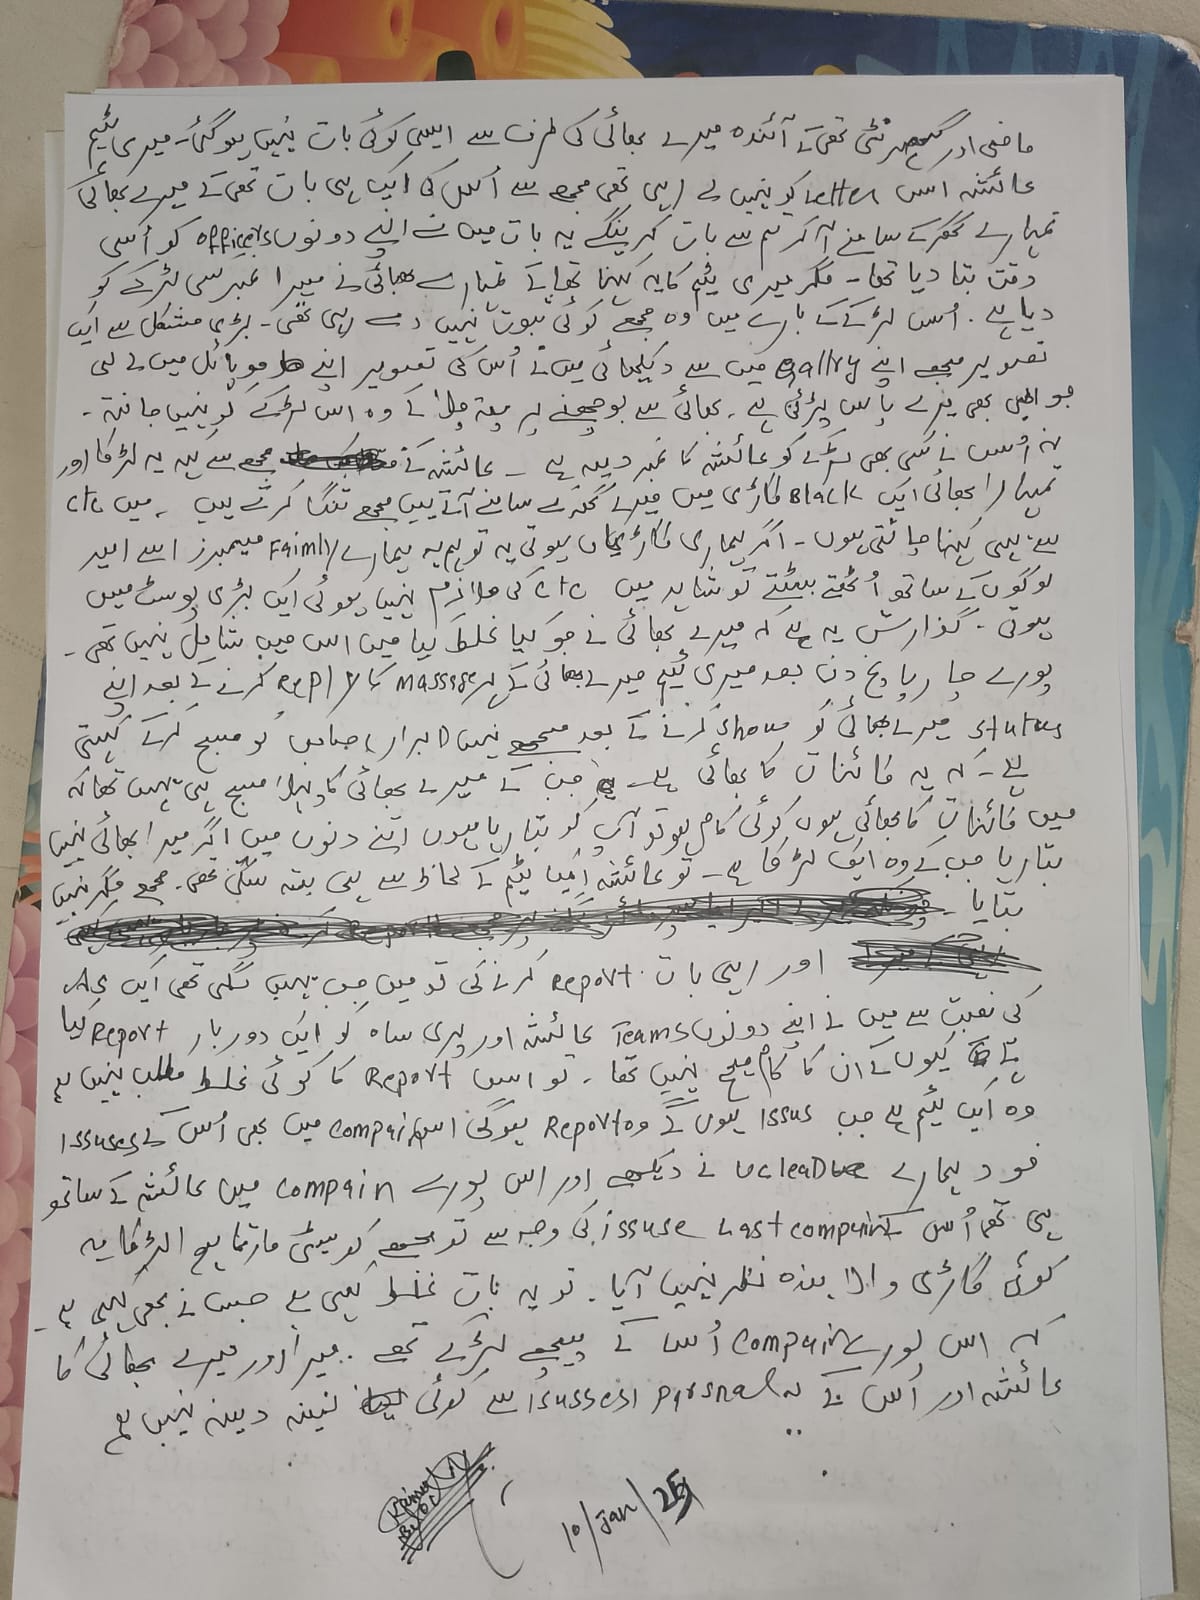 آئندہ میرے بھائی کی طرف سے ایسی کوئی بات نہیں ہوگئی۔ میری ٹیم
عائشہ اس letter کو نہیں لے رہی تھی مجھ سے اُس کی ایک ہی بات تھی کے میرے بھائی
تمہارے گھر کے سامنے آ کر تم سے بات کرینگے یہ بات میں نے اپنے دونوں officers کو اُسی
وقت بتا دیا تھا۔ مگر میری ٹیم کا یہ کہنا تھا کے تمہارے بھائی نے میرا نمبر کسی لڑکے کو
دیا ہے۔ اُس لڑکے کے بارے میں وہ مجھے کوئی ثبوت نہیں دے رہی تھی۔ بڑی مشکل سے ایک
تصویر مجھے اپنے gallry میں سے دیکھائی میں نے اُس کی تصویر اپنے موبائل میں لے لی
جو ابھی بھی میرے پاس پڑی ہے۔ بھائی سے پوچھنے پر پتہ چلا کے وہ اس لڑکے کو نہیں جانتہ۔
نہ اُس نے کسی بھی لڑکے کو عائشہ کا نمبر دیہ ہے۔ عائشہ کے مجھ سے یہ لڑکا اور
تمہارا بھائی ایک Black گاڑی میں میرے گھر کے سامنے آتے ہیں مجھے تنگ کرتے ہیں۔ میں ctc
سے یہی کہنا چاہتی ہوں۔ اگر ہماری گاڑی ہوتی یہ تو ہم یہ ہمارے Faimly میمبرز اسے امیر
لوگوں کے ساتھ اُٹھتے بیٹتے تو شاید میں ctc کی ملازم نہیں ہوتی ایک بڑی پوسٹ میں
ہوتی۔ گذارش یہ ہے کہ میرے بھائی نے جو کیا غلط کیا میں اس میں شامل نہیں تھی۔
پورے چار پانچ دن بعد میری ٹیم میرے بھائی کے ہر Massege کا Reply کرنے کے بعد اپنے
status میرے بھائی کو show کرنے کے بعد مجھے نہیں ابرار صاحب کو میسج کرکے کہتی
ہے۔ کہ یہ کائنات کا بھائی ہے۔ جب کے میرے بھائی کا پہلا میسج ہی یہیں تھا کہ
میں کائنات کا بھائی ہوں کوئی کام ہو تو آپ کو بتا رہا ہوں اتنے دنوں میں اگر میرا بھائی نہیں
بتا رہا جب کے وہ ایک لڑکا ہے۔ تو عائشہ ایک ٹیم کے لحاظ سے ہی بتہ سکتی تھی۔ مجھے مگر نہیں
بتایا۔
اور رہی بات report کرنے کی تو میں جب یہیں لگی تھی ایک As
کی نصبت سے میں نے اپنے دونوں Teams عائشہ اور پری ساہ کو ایک دو بار Report کیا
ہے کیوں کے ان کا کام صحیح نہیں تھا۔ تو اس Report کا کوئی غلط مطلب نہیں ہے
وہ ایک ٹیم ہے جب Issus ہوں گے وہ Report ہوگی اس compain میں بھی اُس کے Issuses
خود ہمارے نے دیکھے اور اس پورے compain میں عائشہ کے ساتھ
ہی تھی اُس کے Last compain issuse کی وجہ سے تو مجھے کو سیٹی مارتا ہے لڑکا یہ
کوئی گاڑی والا بندہ نظر نہیں آیا۔ تو یہ بات غلط کہی ہے جس نے بھی کہی ہے۔
کہ اس پورے compain اُس کے پیچھے لڑکے تھے۔ میرا اور میرے بھائی کا
عائشہ اور اُس کے pirsnal Isusses سے کوئی لینہ دینہ نہیں ہے
10/Jan/25